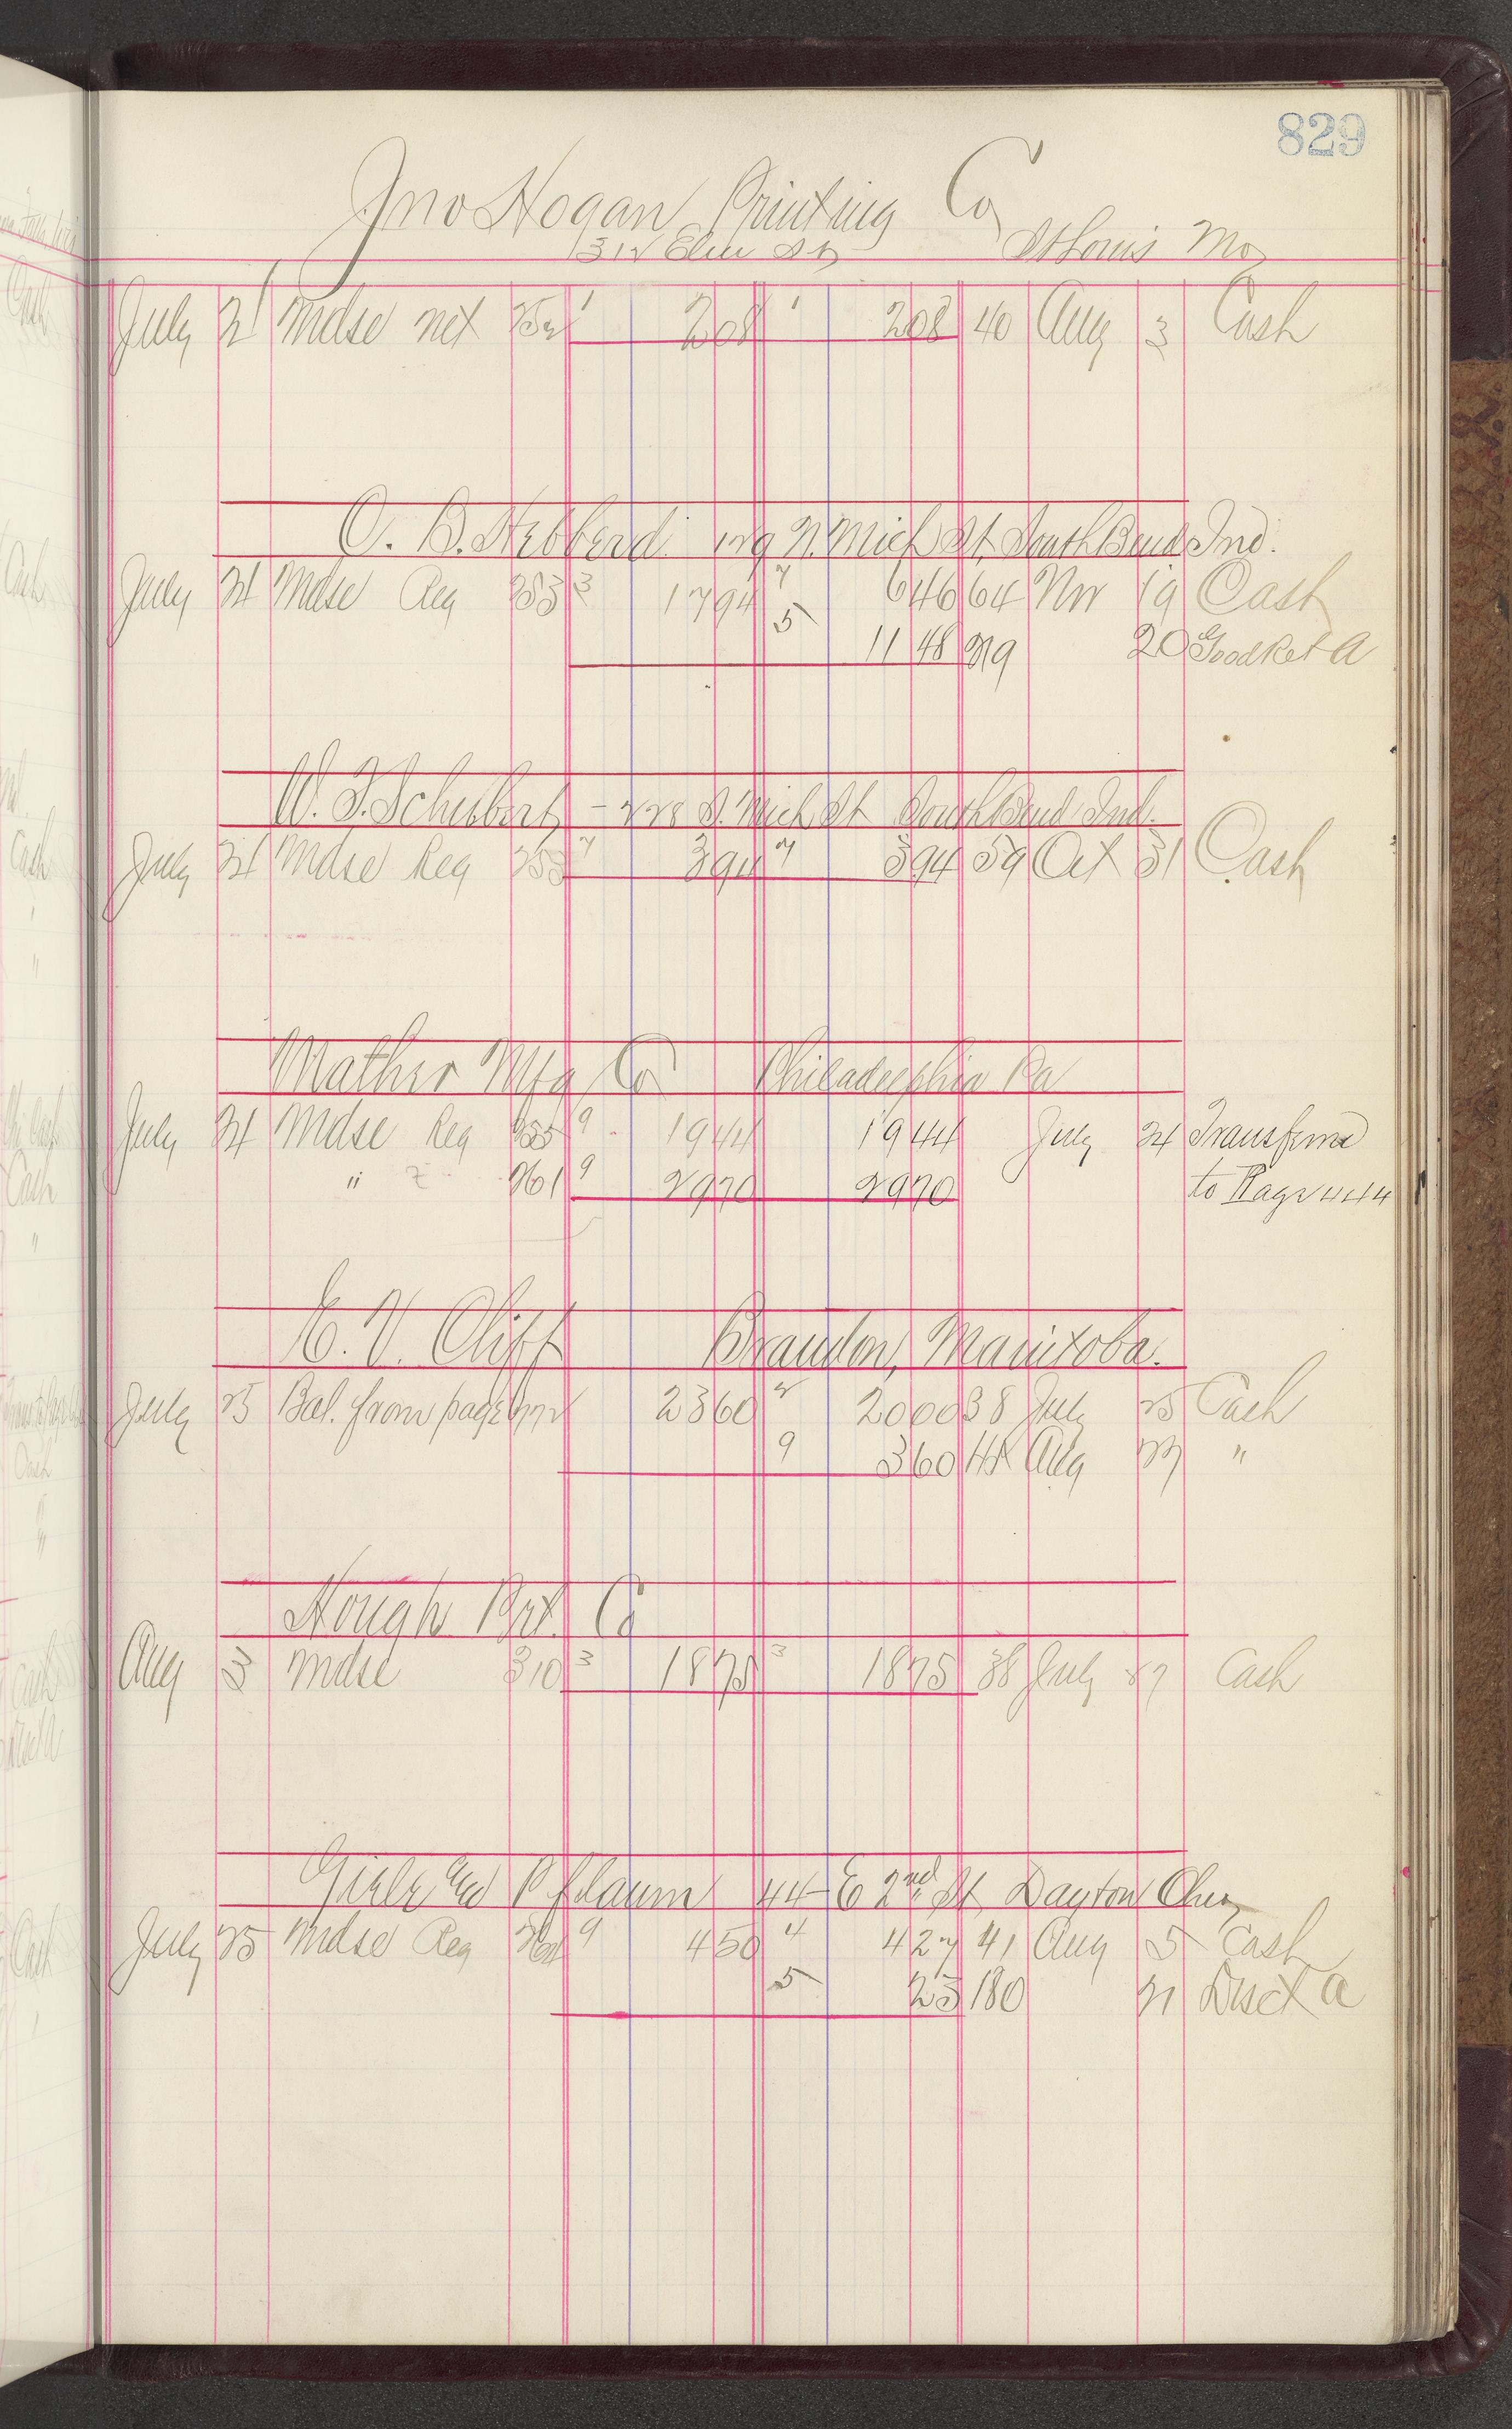 829
Jno Hogan Printing Co
312 Elm St St Louis Mo
July 21 Mdse net 252 1 208 1 208 40 Aug 3 Cash
O. B. Hebberd 129 N. Mich St. South Bend Ind.
July 24 Mdse Reg 253 3 1794 7 646 64 Nov 19 Cash
5 1148 219 20 Good Ret A
W. F. Schubert - 228 S. Mich St South Bend Ind.
July 24 Mdse Reg 253 7 394 7 394 59 Oct 31 Cash
Mather Mfg Co Philadelphia Pa
July 24 Mdse Reg 255 9 1944 1944 July 24 Transferred
" 261 9 2970 2970 to Page 444
E. V. Cliff Brandon, Manitoba.
July 25 Bal. from page 2360 2 2000 38 July 25 Cash
9 360 Aug 27 "
Hough Prt. Co
Aug 3 Mdse 310 3 1875 3 1875 38 July 27 Cash
Pflaum 44 E 2nd St Dayton Ohio
July 25 Mdse Reg 261 9 450 4 427 41 Aug 5 Cash
5 23 180 21 Disct a